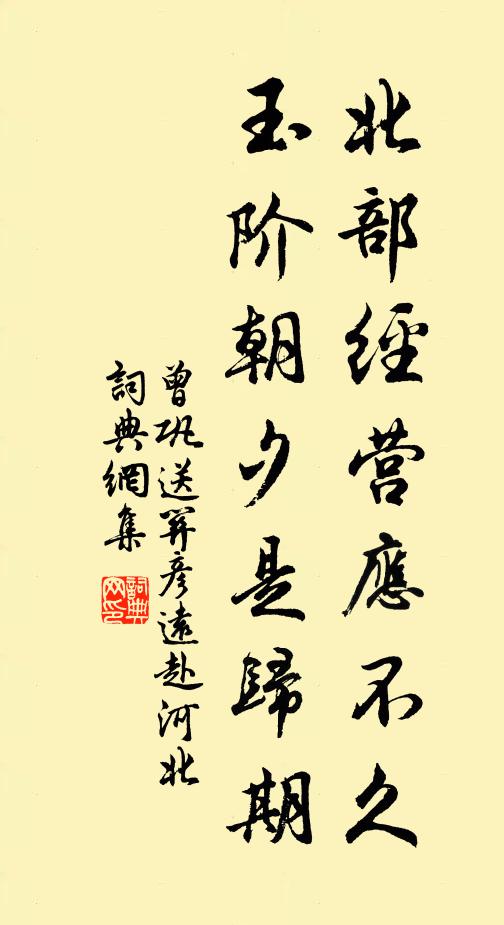 北部經营應不久
玉阶朝夕是歸期
曾巩送關彦遠赴河北
詞典網集
詞典网印